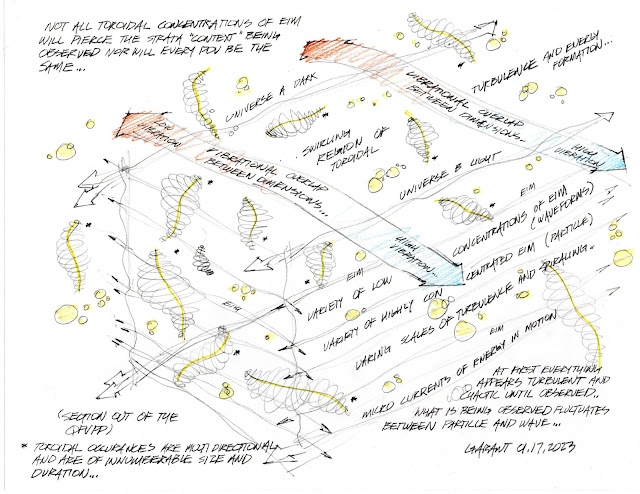 NOT ALL TOROIDAL CONCENTRATIONS OF EIM
WILL PIERCE THE STRATA "CONTEXT" BEING
OBSERVED NOR WILL EVERY POV BE THE
SAME...
TURBULENCE AND ENERGY
FORMATION...
UNIVERSE A DARK
VIBRATIONAL OVERLAP
BETWEEN DIMENSIONS...
HIGH
VIBRATION
LOW
VIBRATION
SWIRLING
REGION OF
TOROIDAL
VIBRATIONAL OVERLAP
BETWEEN DIMENSIONS...
HIGH
VIBRATION
UNIVERSE B LIGHT
EIM
CONCENTRATIONS OF EIM
(WAVEFORMS)
EIM
VARIETY OF LOW
CENTRATED EIM (PARTICLE)
VARIETY OF HIGHLY CON
EIM
VARING SCALES OF TURBULENCE AND SPIRALING.
EIM
MICRO CURRENTS OF ENERGY IN MOTION
AT FIRST EVERYTHING
APPEARS TURBULENT AND
CHAOTIC UNTIL OBSERVED..
WHAT IS BEING OBSERVED FLUCTUATES
BETWEEN PARTICLE AND WAVE...
(SECTION OUT OF THE
* TOROIDAL OCCURANCES ARE MULTI DIRECTIONAL
AND ARE OF INNUMBERABLE SIZE AND
DURATION...
GARANT 01.17.2023